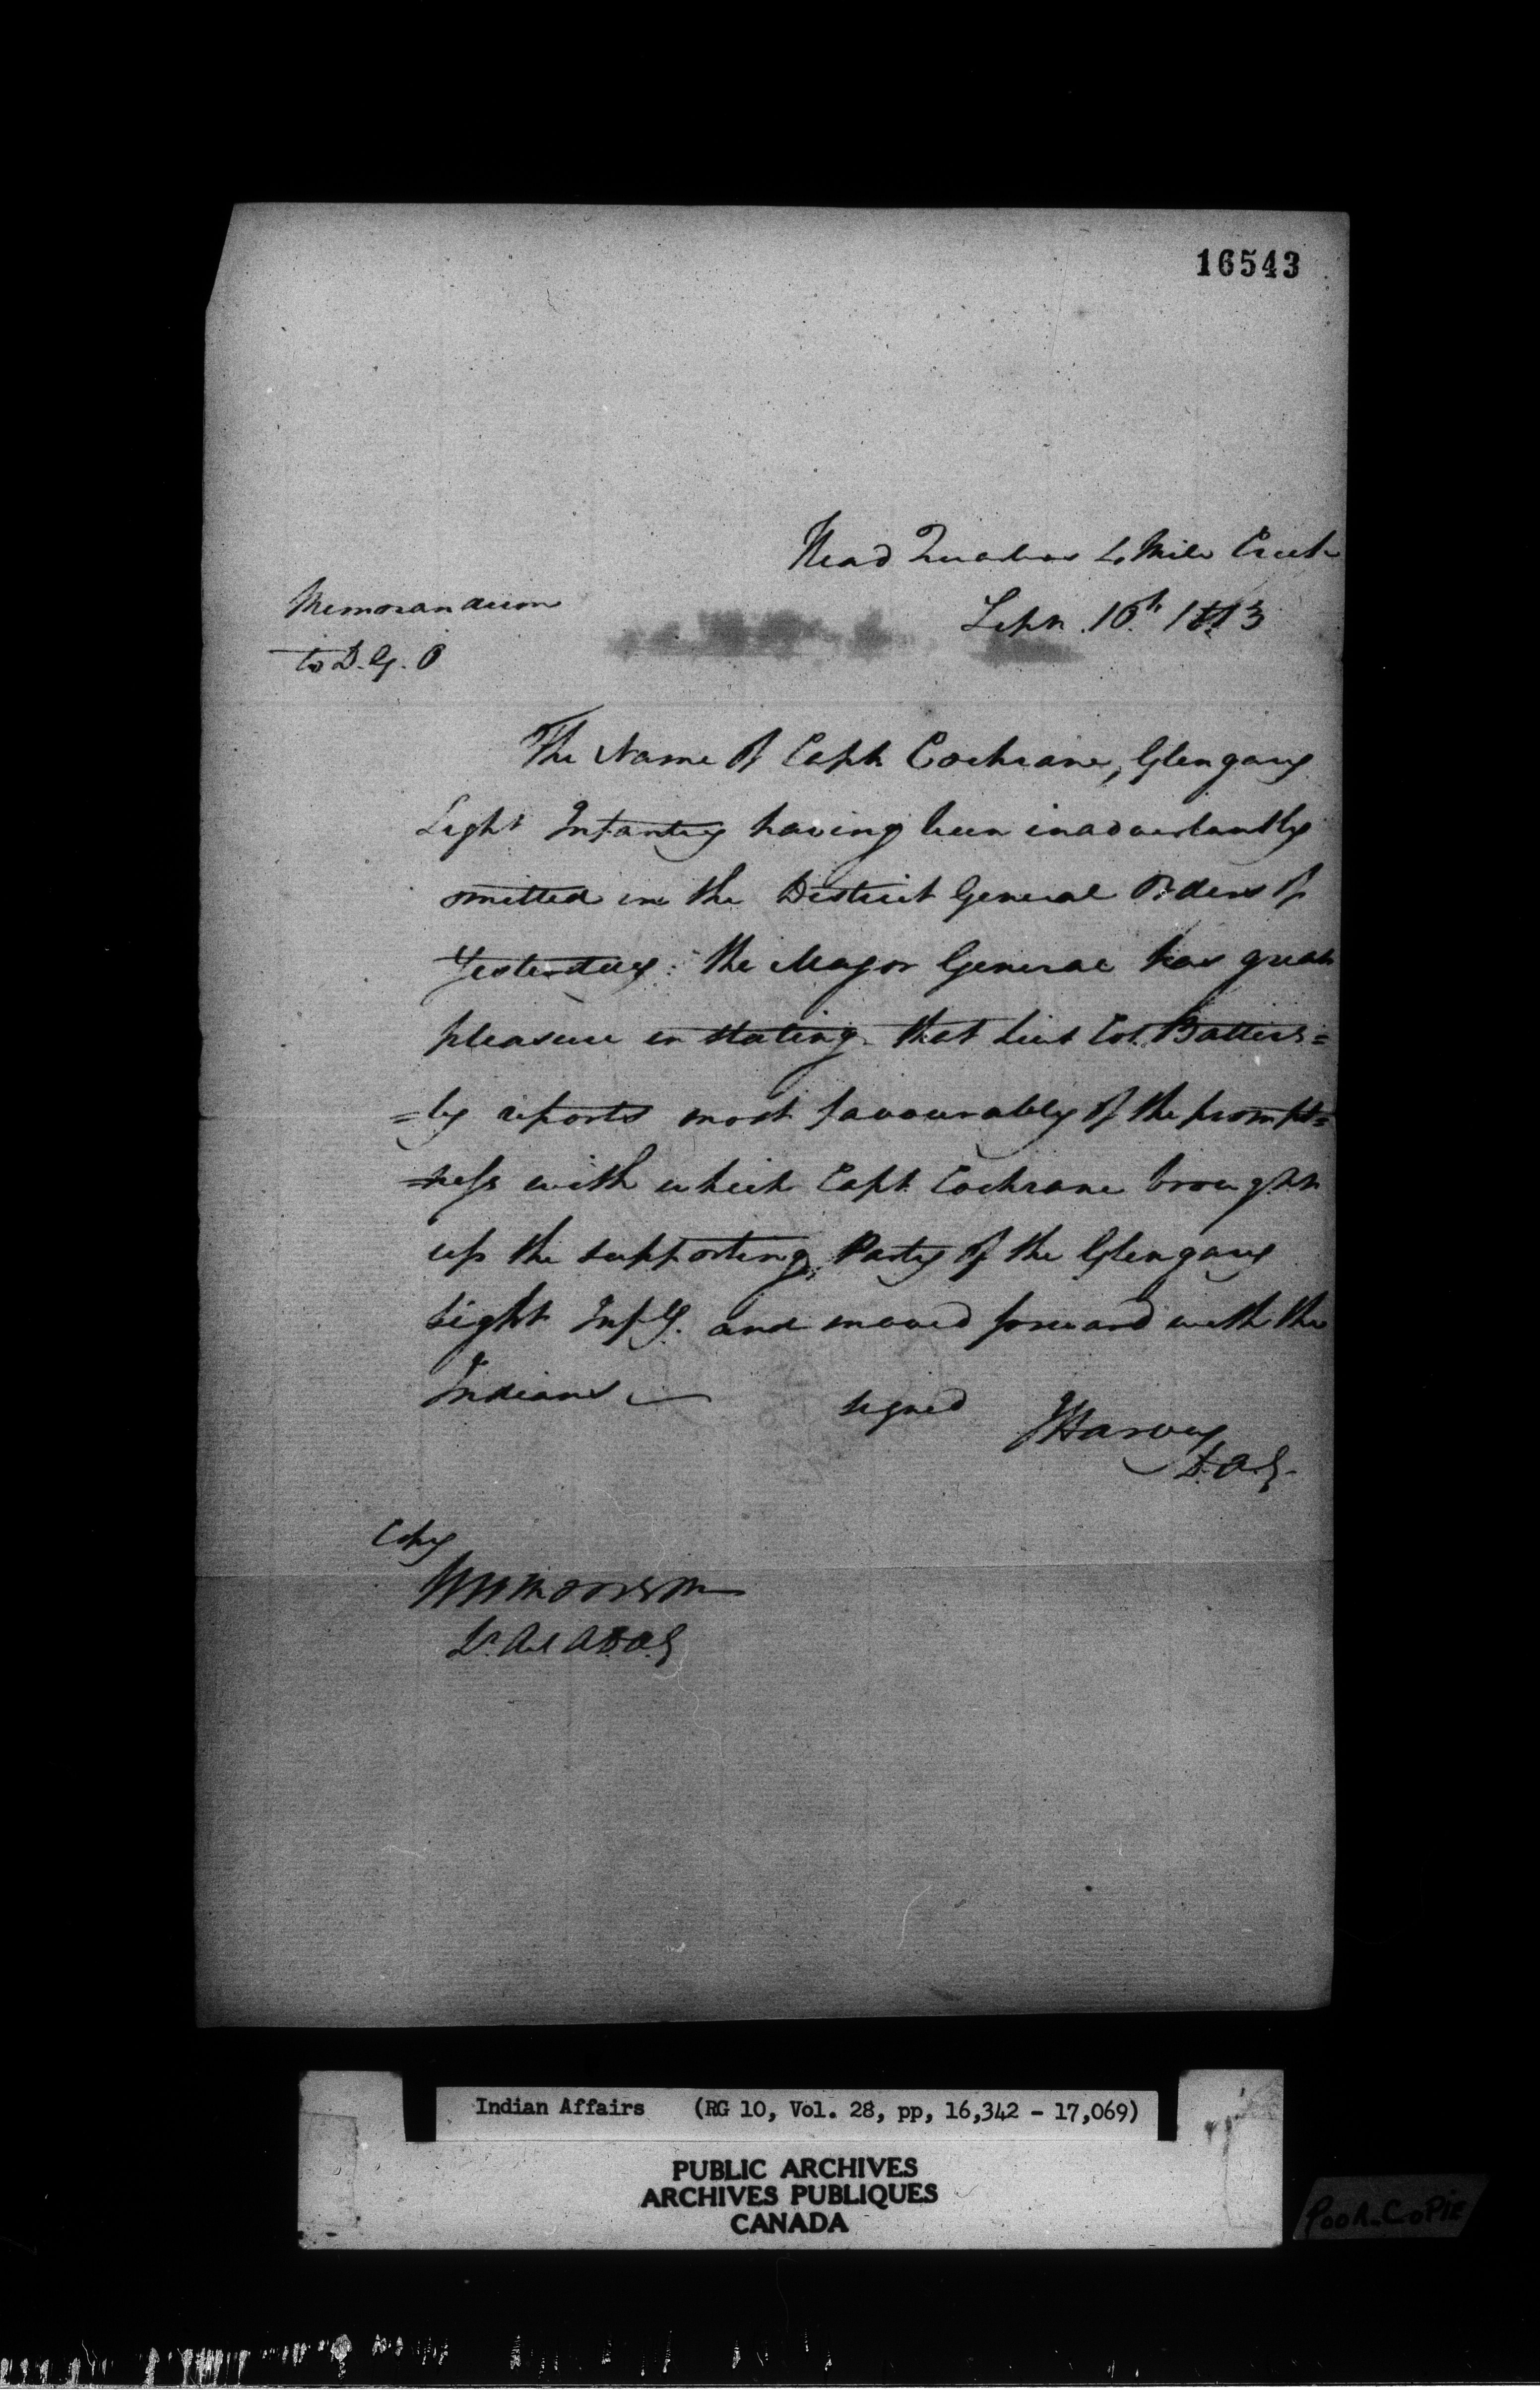 16543
Head Quarters 4 Mile Creek
Sepr. 10th 1813
Memorandum
to D.G.O
The Name of Capt Cochrane, Glengary
Light Infantry having been inadvertantly
omitted in the District General Orders of
Yesterday: the Major General has great
pleasure in stating that Lieut Col. Batters=
=by reports most favourably of the prompt=
=ness with which Capt. Cochrane brought
up the supporting Party of the Glengary
Light Infy. and moved forward with the
Indians —
signed JHarvey
D.A.G.
Copy
Lt. A.D.A.G
Indian Affairs (RG 10, Vol. 28, pp, 16,342 - 17,069)
PUBLIC ARCHIVES
ARCHIVES PUBLIQUES
CANADA
POOR COPIE